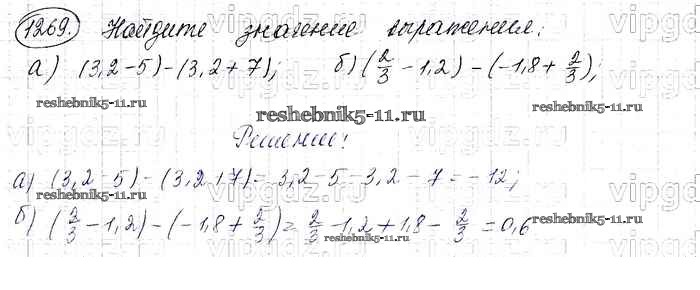 1269. Найдите значение выражения:
а) (3,2-5)-(3,2+7); б) (2/3 -1,2)-(-1,8+ 2/3);
reshebnik5-11.ru
reshebnik5-11.ru
reshebnik5-11.ru
Решение!
а) (3,2-5)-(3,2+7)=3,2-5-3,2-7=-12;
reshebnik5-11.ru
reshebnik5-11.ru
б) (2/3 -1,2)-(-1,8+ 2/3)= 2/3 -1,2+1,8- 2/3 =0,6
vipgdz.ru